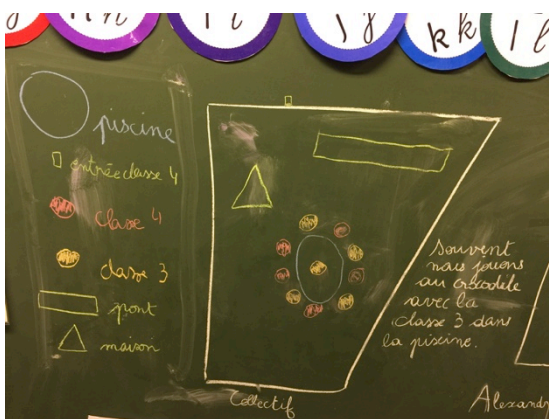 n n
l l
j j
k k
l l
piscine
entrée classe 4
classe 4
classe 3
pont
maison
Souvent
nous jouons
au crocodile
avec la
classe 3 dans
la piscine.
Collectif
Alexand